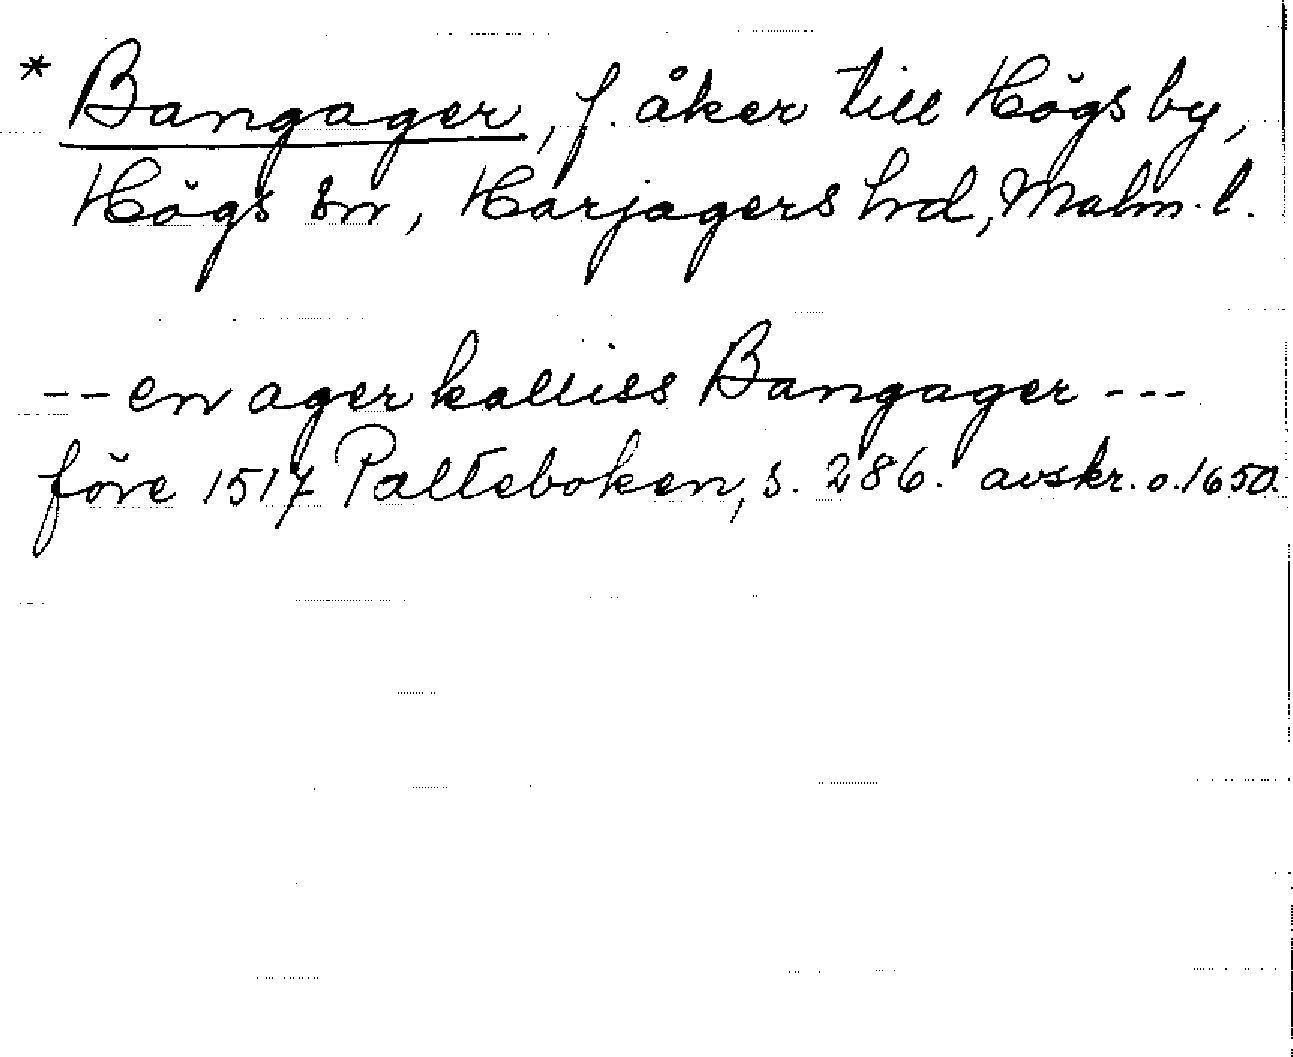 * Bangager, f. åker till Högs by,
Högs sn, Harjagers hrd, Malm. l.
-- en ager kalliss Bangager ---
före 1517 Palteboken, s. 286. avskr. o. 1650.